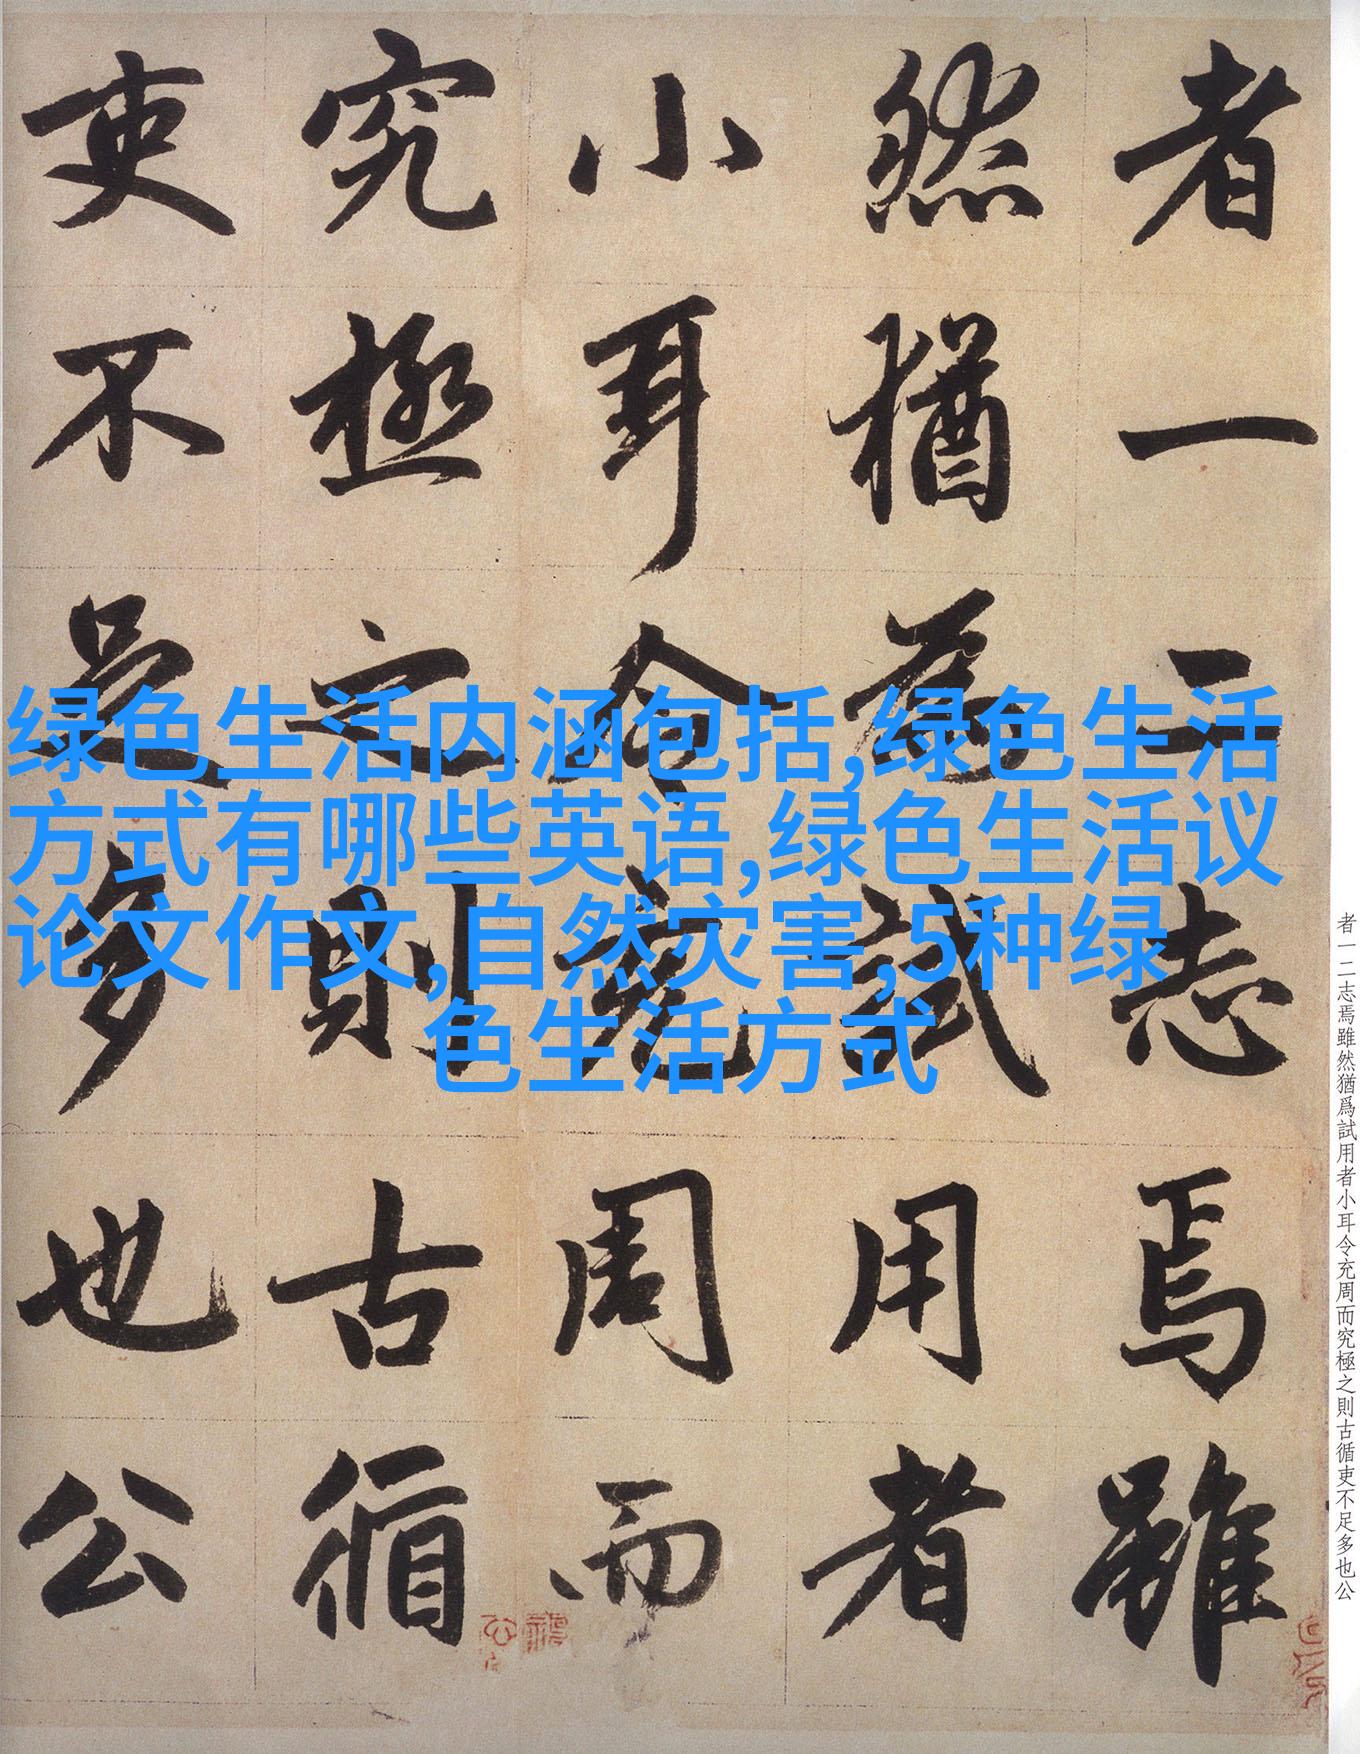 者一二志焉雖
然猶為試用者
小耳令充周而
究極之則古循
吏不足多也公
绿色生活内涵包括,绿色生活
方式有哪些英语,绿色生活议
论文作文,自然灾害,5种绿
色生活方式
者一二志焉雖然猶爲試用者小耳令充周而究極之則古循吏不足多也公